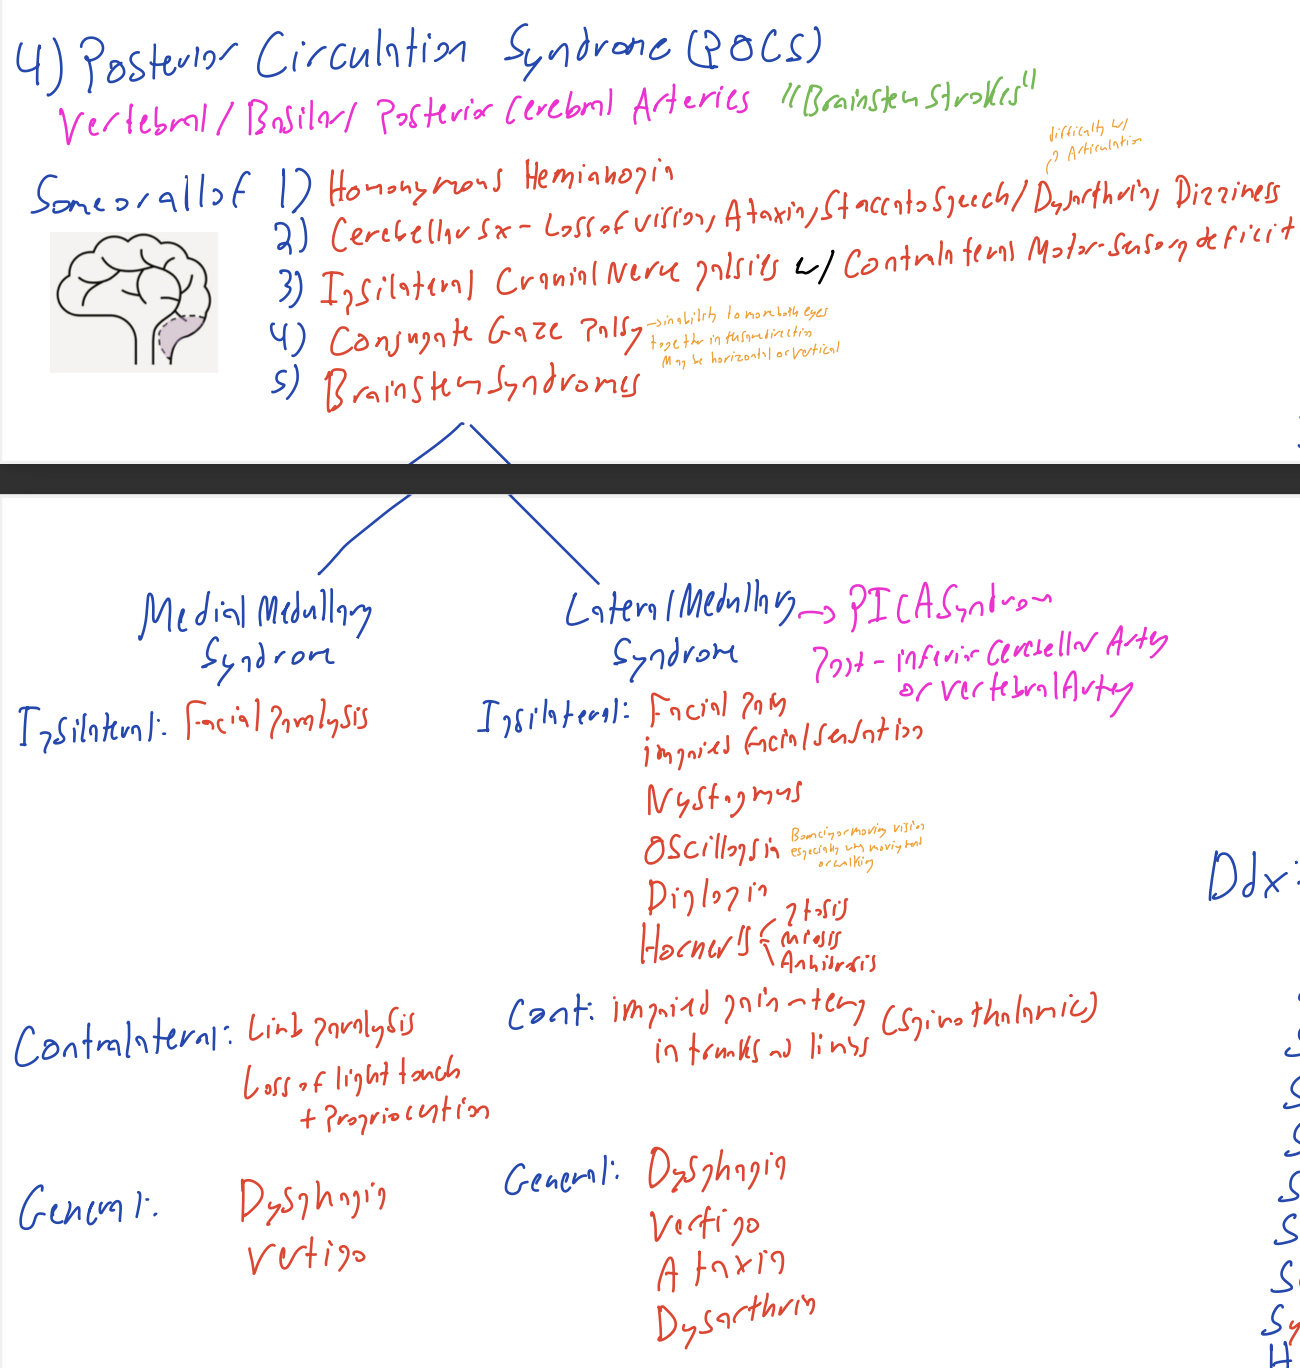 4) Posterior Circulation Syndrome (POCS)
Vertebral / Basilar / Posterior Cerebral Arteries "Brainstem Strokes"
difficulty w/
Articulation
Some or all of 1) Homonymous Hemianopia
2) Cerebellar Sx - Loss of vision, Ataxia, Staccato Speech / Dysarthria, Dizziness
3) Ipsilateral Cranial Nerve palsies w/ Contralateral Motor-Sensory deficit
4) Conjugate Gaze Palsy → inability to move both eyes
together in the same direction
May be horizontal or vertical
5) Brainstem Syndromes
Medial Medullary
Syndrome
Lateral Medullary → PICA Syndrom
Syndrome
Post - inferior Cerebellar Artery
or Vertebral Artery
Ipsilateral: Facial Paralysis
Ipsilateral: Facial Pain
impaired facial sensation
Nystagmus
Oscillopsia Bouncing or moving vision
especially when moving head
or walking
Diplopia
Horner's ptosis
miosis
Anhidrosis
Contralateral: Limb paralysis
Loss of light touch
+ Proprioception
Cont: impaired pain - temp (Spinothalamic)
in trunks and limbs
General: Dysphagia
Vertigo
General: Dysphagia
Vertigo
Ataxia
Dysarthria
Ddx:
S
S
S
S
S
S
Sy
H